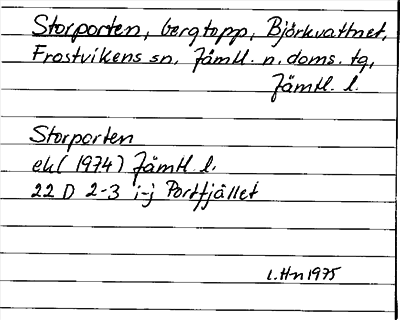 Storporten, bergtopp, Björkvattnet,
Frostvikens sn, Jämtl. n. doms. tg,
Jämtl. l.
Storporten
ek (1974) Jämtl. l.
22 D 2-3 i-j Portfjället
L.Hn 1975